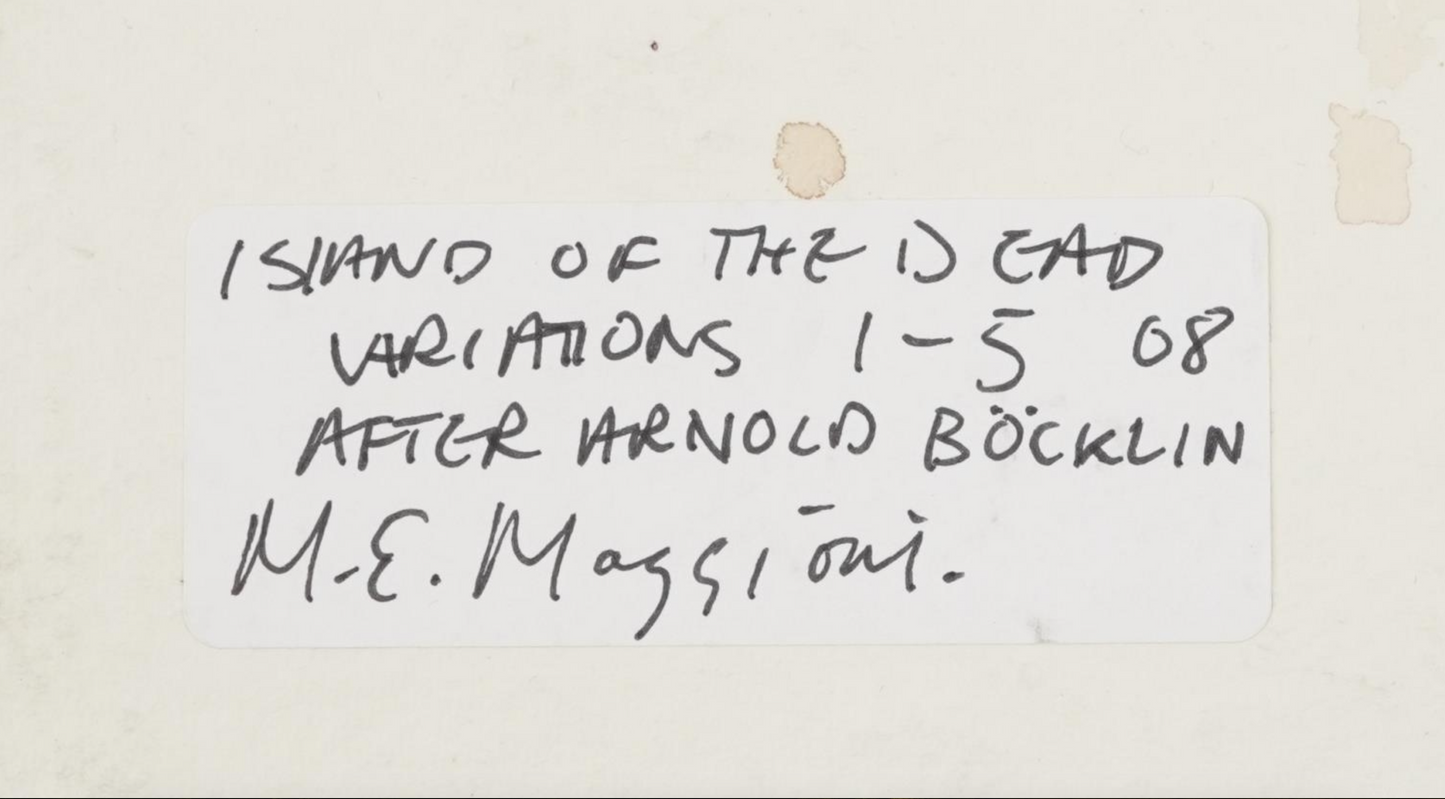 ISLAND OF THE DEAD
VARIATIONS 1-5 08
AFTER ARNOLD BÖCKLIN
M.E. Maggioni.